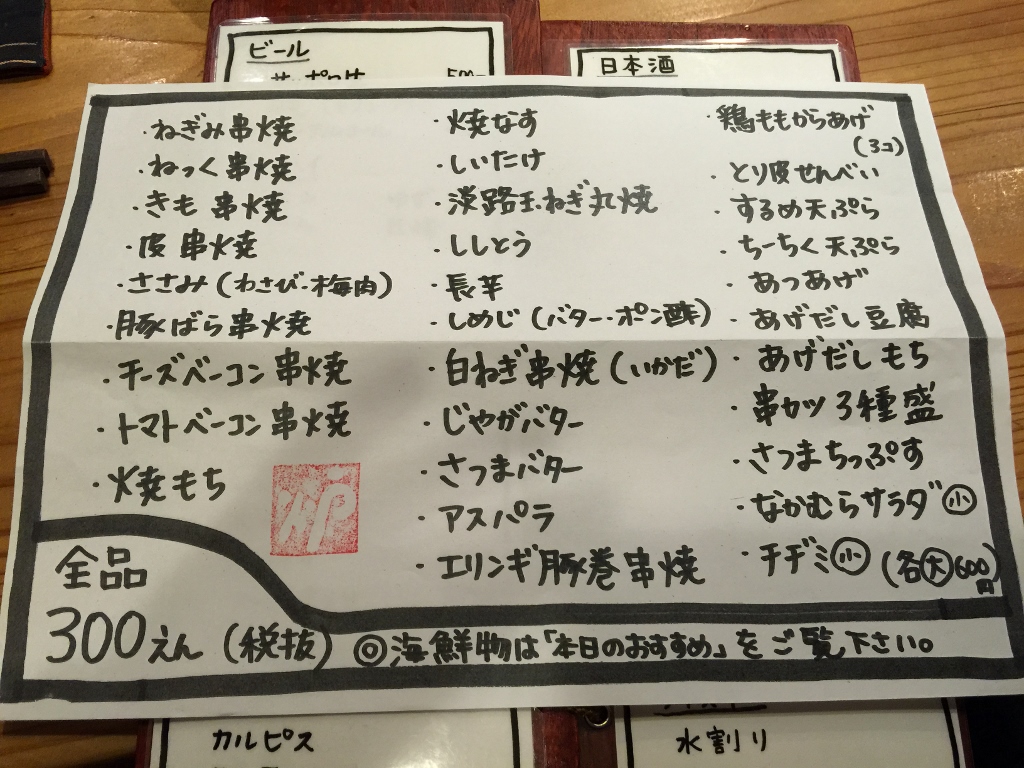 ビール
500-
日本酒
・ねぎみ串焼
・ねっく串焼
・きも串焼
・皮串焼
・ささみ(わさび・梅肉)
・豚ばら串焼
・チーズベーコン串焼
・トマトベーコン串焼
・焼もち
・焼なす
・しいたけ
・淡路玉ねぎ丸焼
・ししとう
・長芋
・しめじ(バター・ポン酢)
・白ねぎ串焼(いかだ)
・じゃがバター
・さつまバター
・アスパラ
・エリンギ豚巻串焼
・鶏ももからあげ
(3コ)
・とり皮せんべい
・するめ天ぷら
・ちーちく天ぷら
・あつあげ
・あげだし豆腐
・あげだしもち
・串カツ3種盛
・さつまちっぷす
・なかむらサラダ小
・チヂミ小(各大600円)
全品
300えん(税抜)
◎海鮮物は「本日のおすすめ」をご覧下さい。
カルピス
水割り